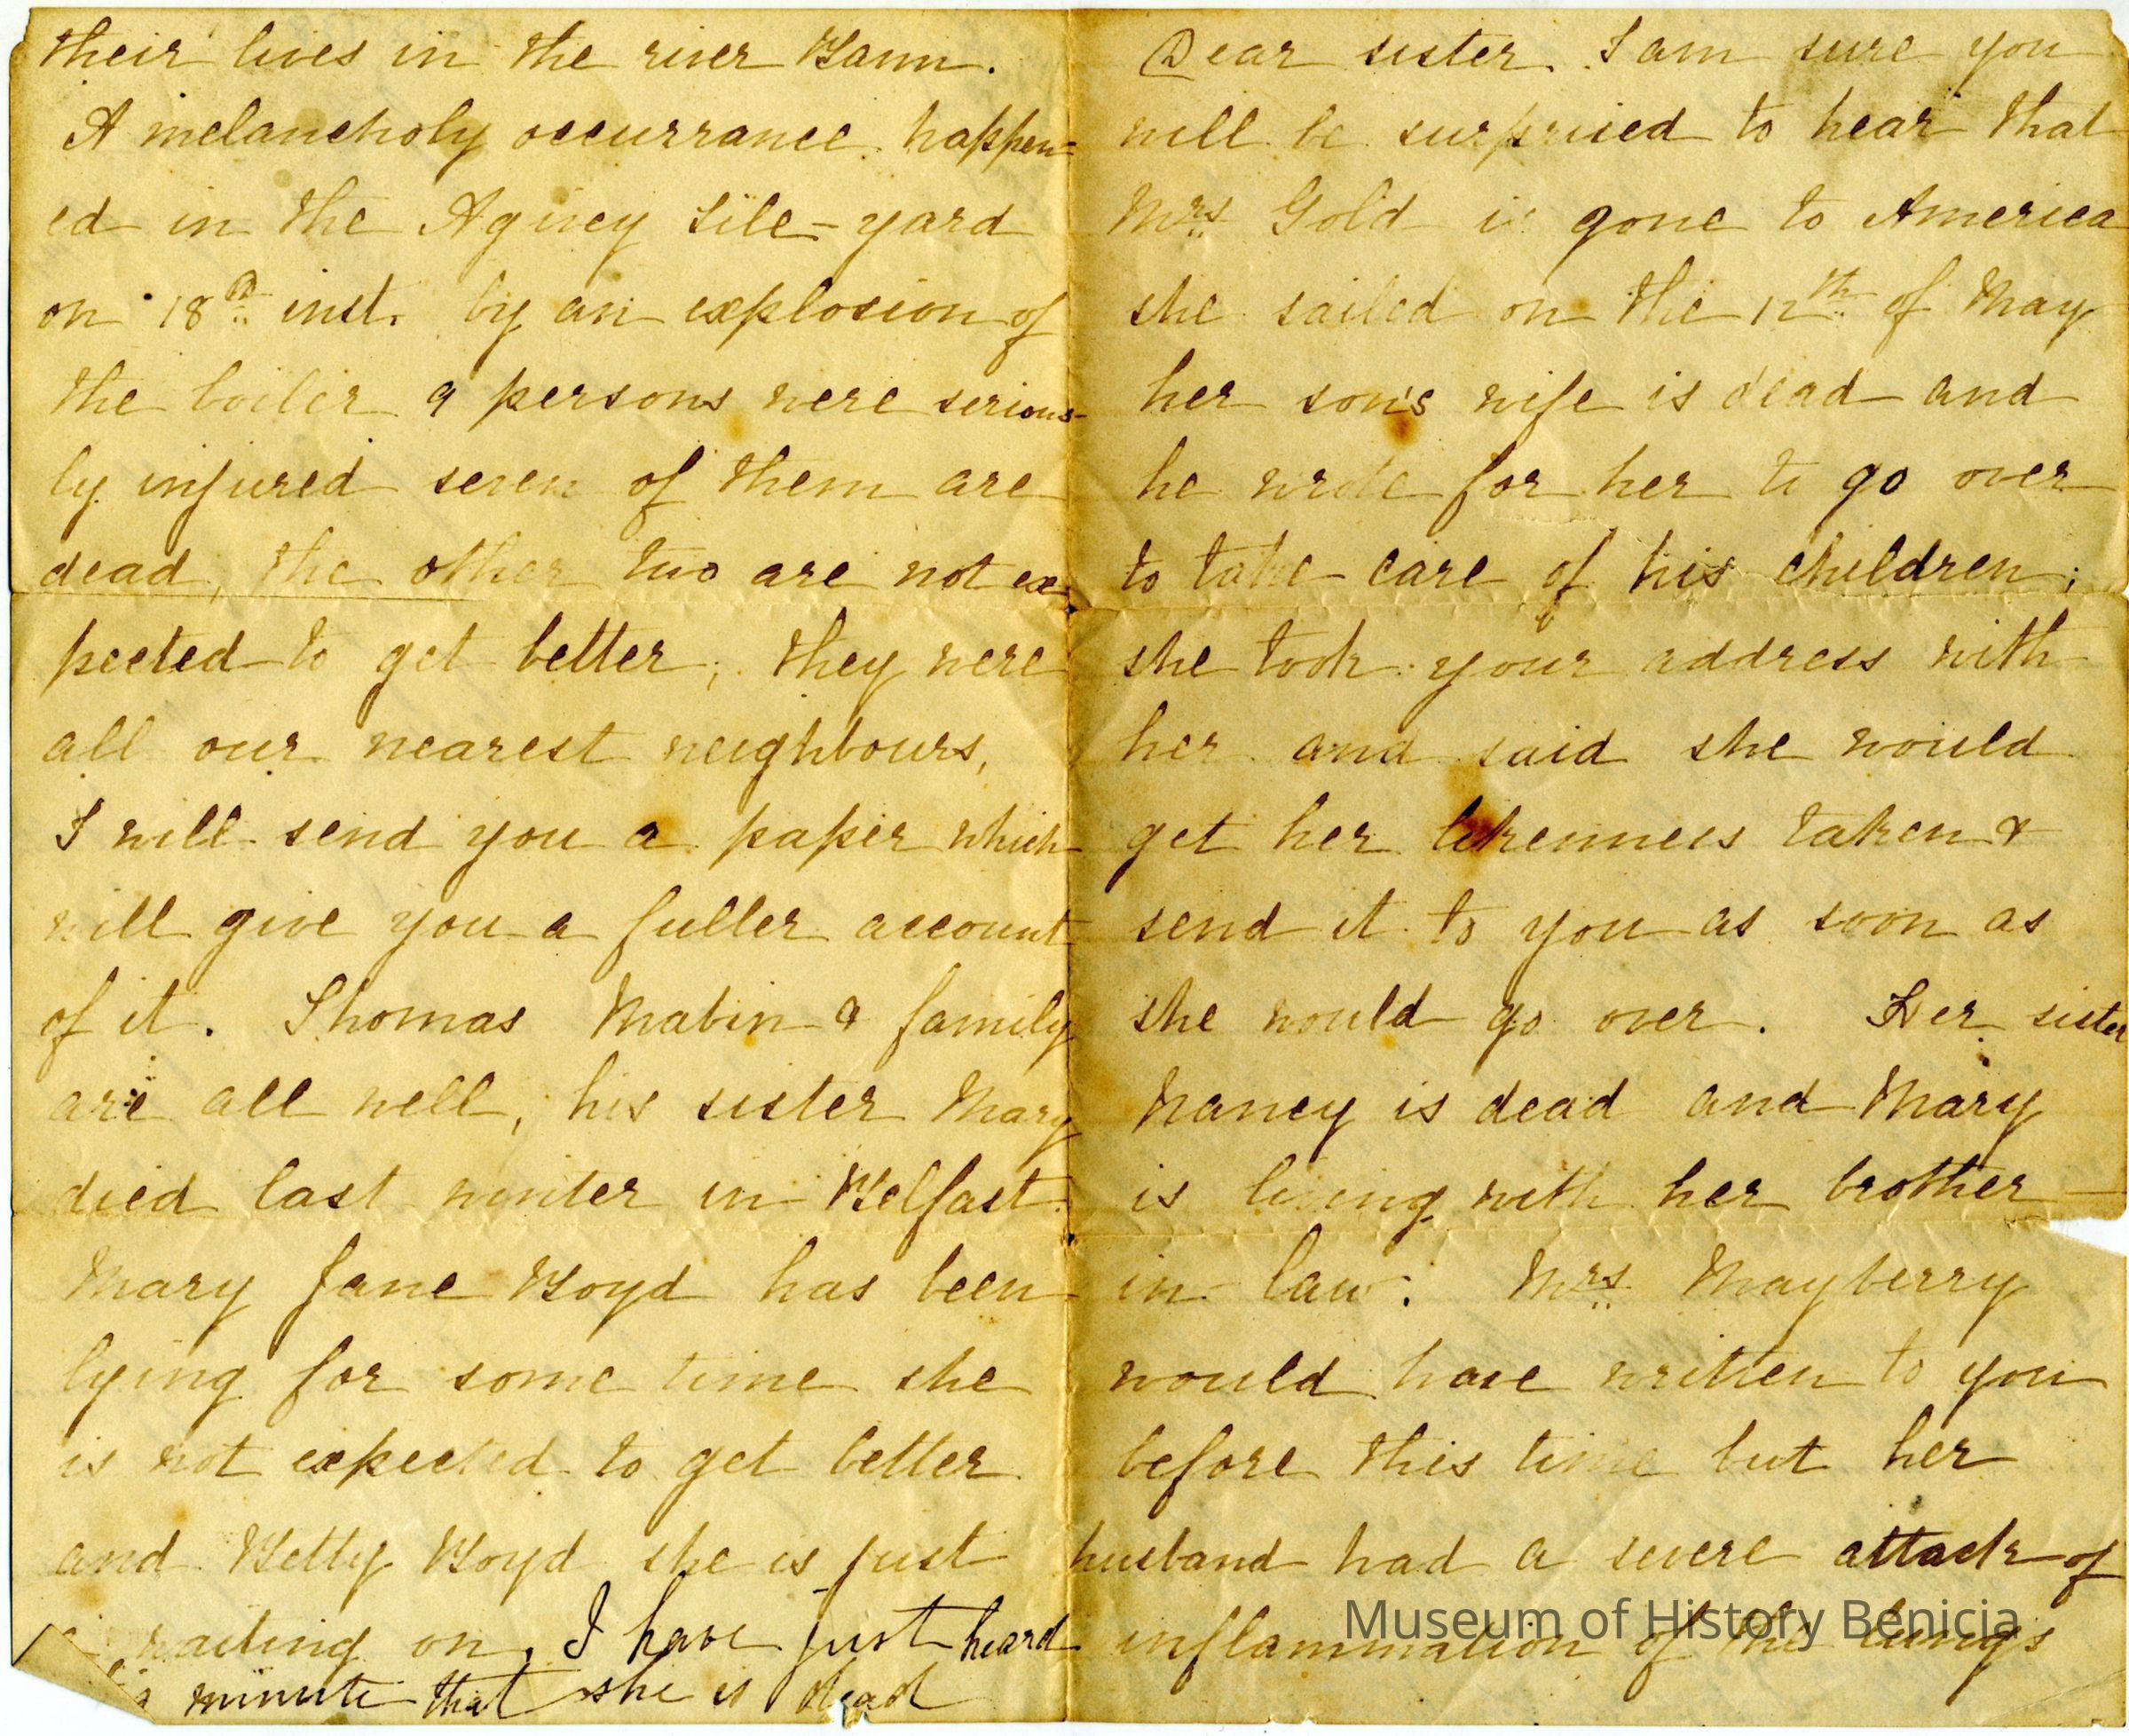 their lives in the river Bann.
A melancholy occurrance happen=
ed in the Agivey Tile-yard
on 18th inst. by an explosion of
the boiler 9 persons were serious-
ly injured seven of them are
dead, the other two are not ex-
pected to get better; they were
all our nearest neighbours,
I will send you a paper which
will give you a fuller account
of it. Thomas Mabin & family
are all well, his sister Mary
died last winter in Belfast.
Mary Jane Boyd has been
lying for some time she
is not expected to get better
and Betty Boyd she is just
waiting on, I have just heard
minute that she is dead
Dear sister. I am sure you
will be surprised to hear that
Mrs Gold is gone to America
she sailed on the 12th of May
her son's wife is dead and
he wrote for her to go over
to take care of his children;
she took your address with
her and said she would
get her likenness taken &
send it to you as soon as
she would go over. Her sister
Nancy is dead and Mary
is living with her brother-
in law. Mrs Mayberry
would have written to you
before this time but her
husband had a severe attack of
inflammation of the lungs
Museum of History Benicia